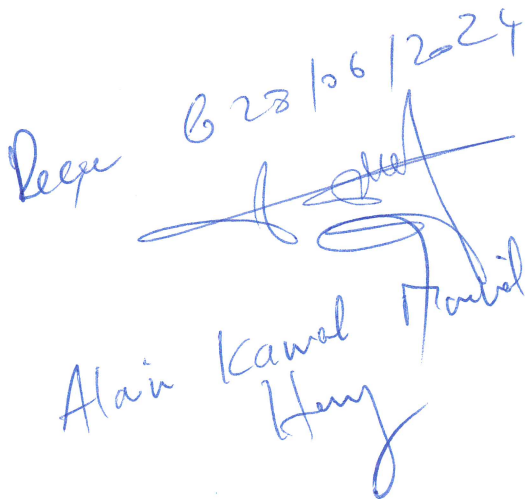 Reçu le 28/06/2024
Alain Kamal
Henry